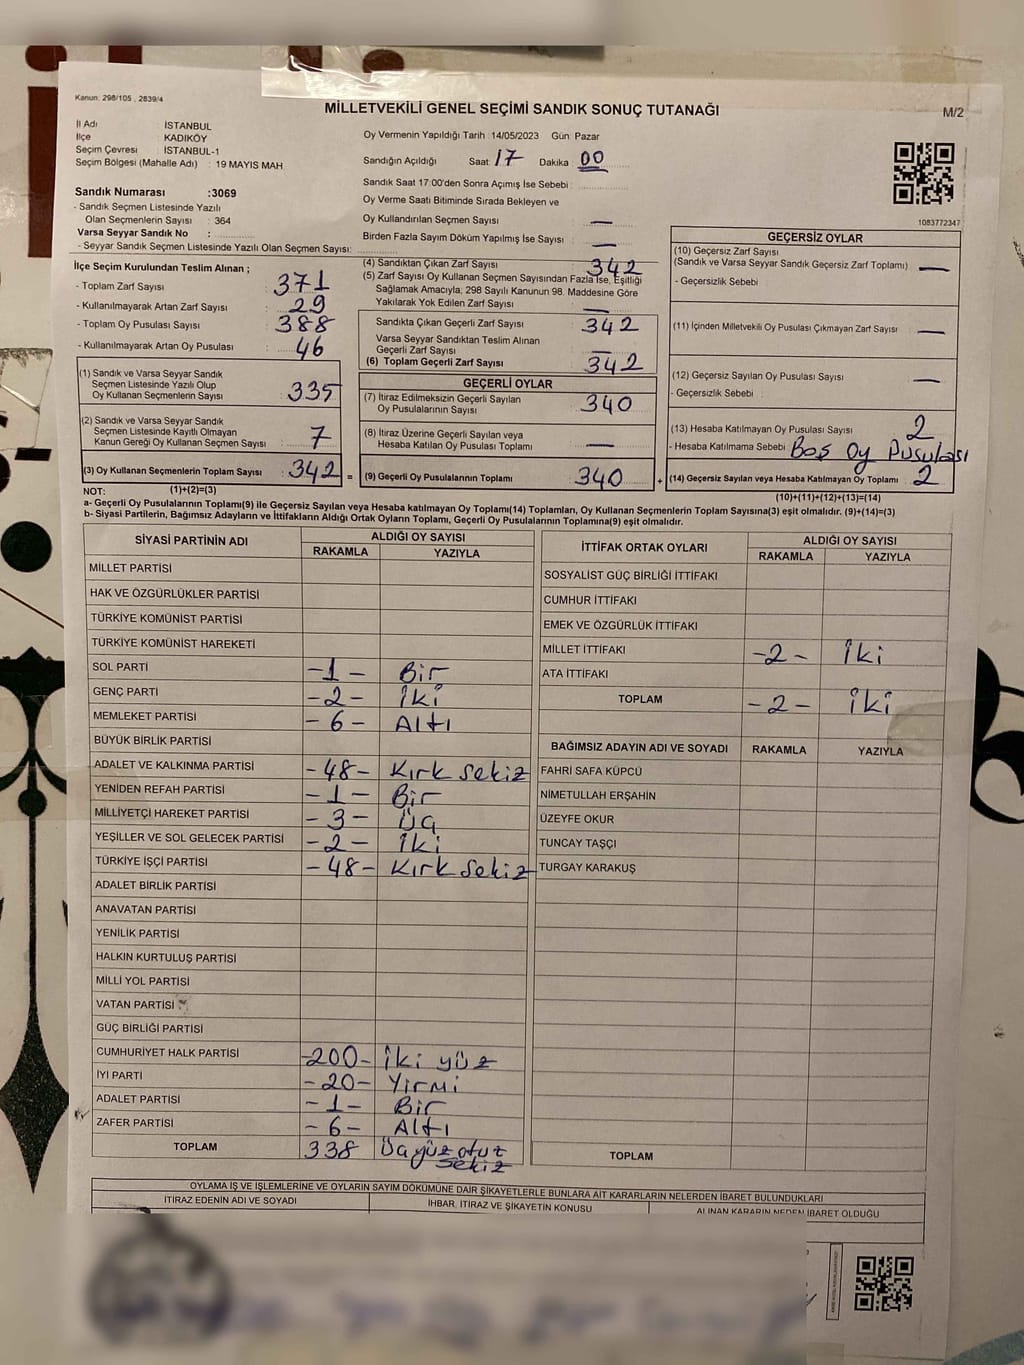 Kanun: 298/105 , 2839/4
MİLLETVEKİLİ GENEL SEÇİMİ SANDIK SONUÇ TUTANAĞI
M/2
İl Adı İSTANBUL
İlçe KADIKÖY
Seçim Çevresi : İSTANBUL-1
Seçim Bölgesi (Mahalle Adı) : 19 MAYIS MAH
Oy Vermenin Yapıldığı Tarih : 14/05/2023 Gün: Pazar
Sandığın Açıldığı Saat : 17 Dakika : 00
Sandık Saat 17:00'den Sonra Açımış İse Sebebi :
Oy Verme Saati Bitiminde Sırada Bekleyen ve
Oy Kullandırılan Seçmen Sayısı : —
Birden Fazla Sayım Döküm Yapılmış İse Sayısı : —
1083772347
Sandık Numarası :3069
- Sandık Seçmen Listesinde Yazılı
Olan Seçmenlerin Sayısı : 364
Varsa Seyyar Sandık No :
- Seyyar Sandık Seçmen Listesinde Yazılı Olan Seçmen Sayısı:
İlçe Seçim Kurulundan Teslim Alınan ;
- Toplam Zarf Sayısı : 371
- Kullanılmayarak Artan Zarf Sayısı : 29
- Toplam Oy Pusulası Sayısı : 388
- Kullanılmayarak Artan Oy Pusulası : 46
(1) Sandık ve Varsa Seyyar Sandık
Seçmen Listesinde Yazılı Olup
Oy Kullanan Seçmenlerin Sayısı : 335
(2) Sandık ve Varsa Seyyar Sandık
Seçmen Listesinde Kayıtlı Olmayan
Kanun Gereği Oy Kullanan Seçmen Sayısı : 7
(3) Oy Kullanan Seçmenlerin Toplam Sayısı : 342 =
(1)+(2)=(3)
(4) Sandıktan Çıkan Zarf Sayısı : 342
(5) Zarf Sayısı Oy Kullanan Seçmen Sayısından Fazla İse, Eşitliği
Sağlamak Amacıyla; 298 Sayılı Kanunun 98. Maddesine Göre
Yakılarak Yok Edilen Zarf Sayısı : —
Sandıkta Çıkan Geçerli Zarf Sayısı : 342
Varsa Seyyar Sandıktan Teslim Alınan
Geçerli Zarf Sayısı : —
(6) Toplam Geçerli Zarf Sayısı : 342
GEÇERLİ OYLAR
(7) İtiraz Edilmeksizin Geçerli Sayılan
Oy Pusulalarının Sayısı : 340
(8) İtiraz Üzerine Geçerli Sayılan veya
Hesaba Katılan Oy Pusulası Toplamı : —
(9) Geçerli Oy Pusulalarının Toplamı : 340 +
GEÇERSİZ OYLAR
(10) Geçersiz Zarf Sayısı
(Sandık ve Varsa Seyyar Sandık Geçersiz Zarf Toplamı) : —
- Geçersizlik Sebebi
(11) İçinden Milletvekili Oy Pusulası Çıkmayan Zarf Sayısı : —
(12) Geçersiz Sayılan Oy Pusulası Sayısı : —
- Geçersizlik Sebebi :
(13) Hesaba Katılmayan Oy Pusulası Sayısı : 2
- Hesaba Katılmama Sebebi : Boş Oy Pusulası
(14) Geçersiz Sayılan veya Hesaba Katılmayan Oy Toplamı : 2
(10)+(11)+(12)+(13)=(14)
NOT:
a- Geçerli Oy Pusulalarının Toplamı(9) ile Geçersiz Sayılan veya Hesaba katılmayan Oy Toplamı(14) Toplamları, Oy Kullanan Seçmenlerin Toplam Sayısına(3) eşit olmalıdır. (9)+(14)=(3)
b- Siyasi Partilerin, Bağımsız Adayların ve İttifakların Aldığı Ortak Oyların Toplamı, Geçerli Oy Pusulalarının Toplamına(9) eşit olmalıdır.
SİYASİ PARTİNİN ADI ALDIĞI OY SAYISI
RAKAMLA YAZIYLA
MİLLET PARTİSİ
HAK VE ÖZGÜRLÜKLER PARTİSİ
TÜRKİYE KOMÜNİST PARTİSİ
TÜRKİYE KOMÜNİST HAREKETİ
SOL PARTİ -1- Bir
GENÇ PARTİ -2- İki
MEMLEKET PARTİSİ -6- Altı
BÜYÜK BİRLİK PARTİSİ
ADALET VE KALKINMA PARTİSİ -48- Kırk Sekiz
YENİDEN REFAH PARTİSİ -1- Bir
MİLLİYETÇİ HAREKET PARTİSİ -3- Üç
YEŞİLLER VE SOL GELECEK PARTİSİ -2- İki
TÜRKİYE İŞÇİ PARTİSİ -48- Kırk Sekiz
ADALET BİRLİK PARTİSİ
ANAVATAN PARTİSİ
YENİLİK PARTİSİ
HALKIN KURTULUŞ PARTİSİ
MİLLİ YOL PARTİSİ
VATAN PARTİSİ
GÜÇ BİRLİĞİ PARTİSİ
CUMHURİYET HALK PARTİSİ -200- İki yüz
İYİ PARTİ -20- Yirmi
ADALET PARTİSİ -1- Bir
ZAFER PARTİSİ -6- Altı
TOPLAM 338 Üçyüz otuz
Sekiz
İTTİFAK ORTAK OYLARI ALDIĞI OY SAYISI
RAKAMLA YAZIYLA
SOSYALİST GÜÇ BİRLİĞİ İTTİFAKI
CUMHUR İTTİFAKI
EMEK VE ÖZGÜRLÜK İTTİFAKI
MİLLET İTTİFAKI -2- İki
ATA İTTİFAKI
TOPLAM -2- İki
BAĞIMSIZ ADAYIN ADI VE SOYADI RAKAMLA YAZIYLA
FAHRİ SAFA KÜPCÜ
NİMETULLAH ERŞAHİN
ÜZEYFE OKUR
TUNCAY TAŞÇI
TURGAY KARAKUŞ
TOPLAM
OYLAMA İŞ VE İŞLEMLERİNE VE OYLARIN SAYIM DÖKÜMÜNE DAİR ŞİKAYETLERLE BUNLARA AİT KARARLARIN NELERDEN İBARET BULUNDUKLARI
İTİRAZ EDENİN ADI VE SOYADI İHBAR, İTİRAZ VE ŞİKAYETİN KONUSU ALINAN KARARIN NEDEN İBARET OLDUĞU